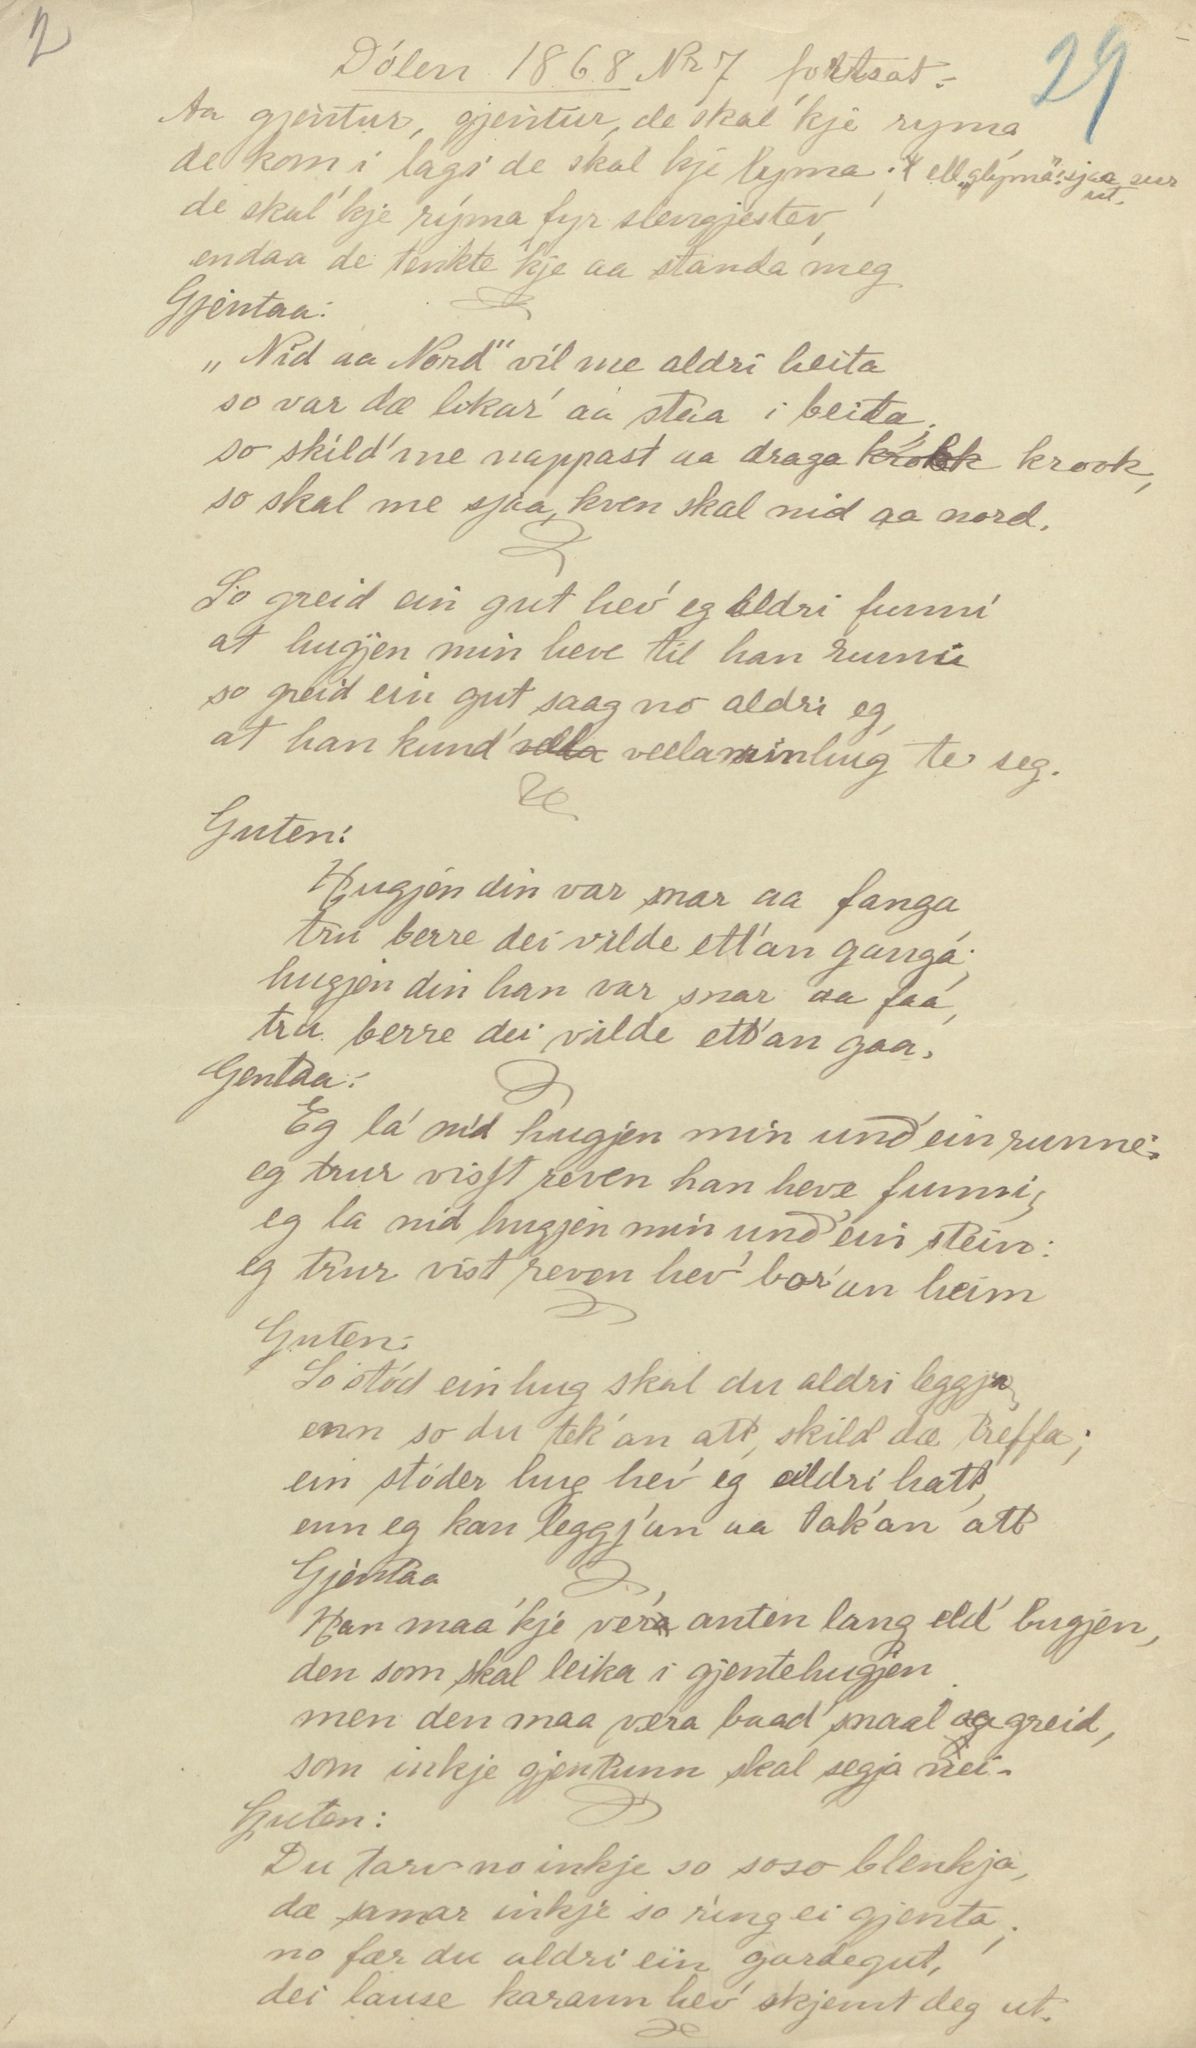 2
29
Dólen 1868 Nr 7 fortsat.
Aa gjentur, gjentur, de skal' kje ryma
de kom i lags de skal kje lyma; ell „glyma": sjaa aur
ut.
de skal' kje ryma fyr slengjestev,
endaa de tenkte 'kje aa standa meg
Gjentaa:
„Nid aa Nord" vil me aldri heita
so var dæ likar' aa staa i beita;
so skild' me nappast aa draga krokk krook,
so skal me sjaa, kven skal nid aa nord.
So greid ein gut hev' eg aldri funni
at hugjen min heve til han runni
so greid ein gut saag no aldri eg,
at han kund' vella vella min hug te seg.
Guten:
Hugjen din var snar aa fanga
tru berre dei vilde ett'an ganga;
hugjen din han var snar aa faa,
tru berre dei vilde ett'an gaa.
Gentaa:
Eg la' nid hugjen min und' ein runne:
eg trur visst reven han heve funni;
eg la nid hugjen min und' ein stein:
eg trur vist reven hev' bor'an heim
Guten:
So stód ein hug skal du aldri leggja,
enn so du tek'an att, skild dæ treffa;
ein stóder hug hev' eg aldri hatt,
enn eg kan leggj'an aa tak'an att
Gjentaa
Han maa 'kje vera anten lang eld' bugjen,
den som skal leika i gjentehugjen
men den maa vera baad' snaal og greid,
som inkje gjentunn skal segja nei.
Guten:
Du tarv no inkje so soso blenkja,
dæ samar inkje so ring ei gjenta;
no fær du aldri ein gardegut,
dei lause karann hev' skjemt deg ut.